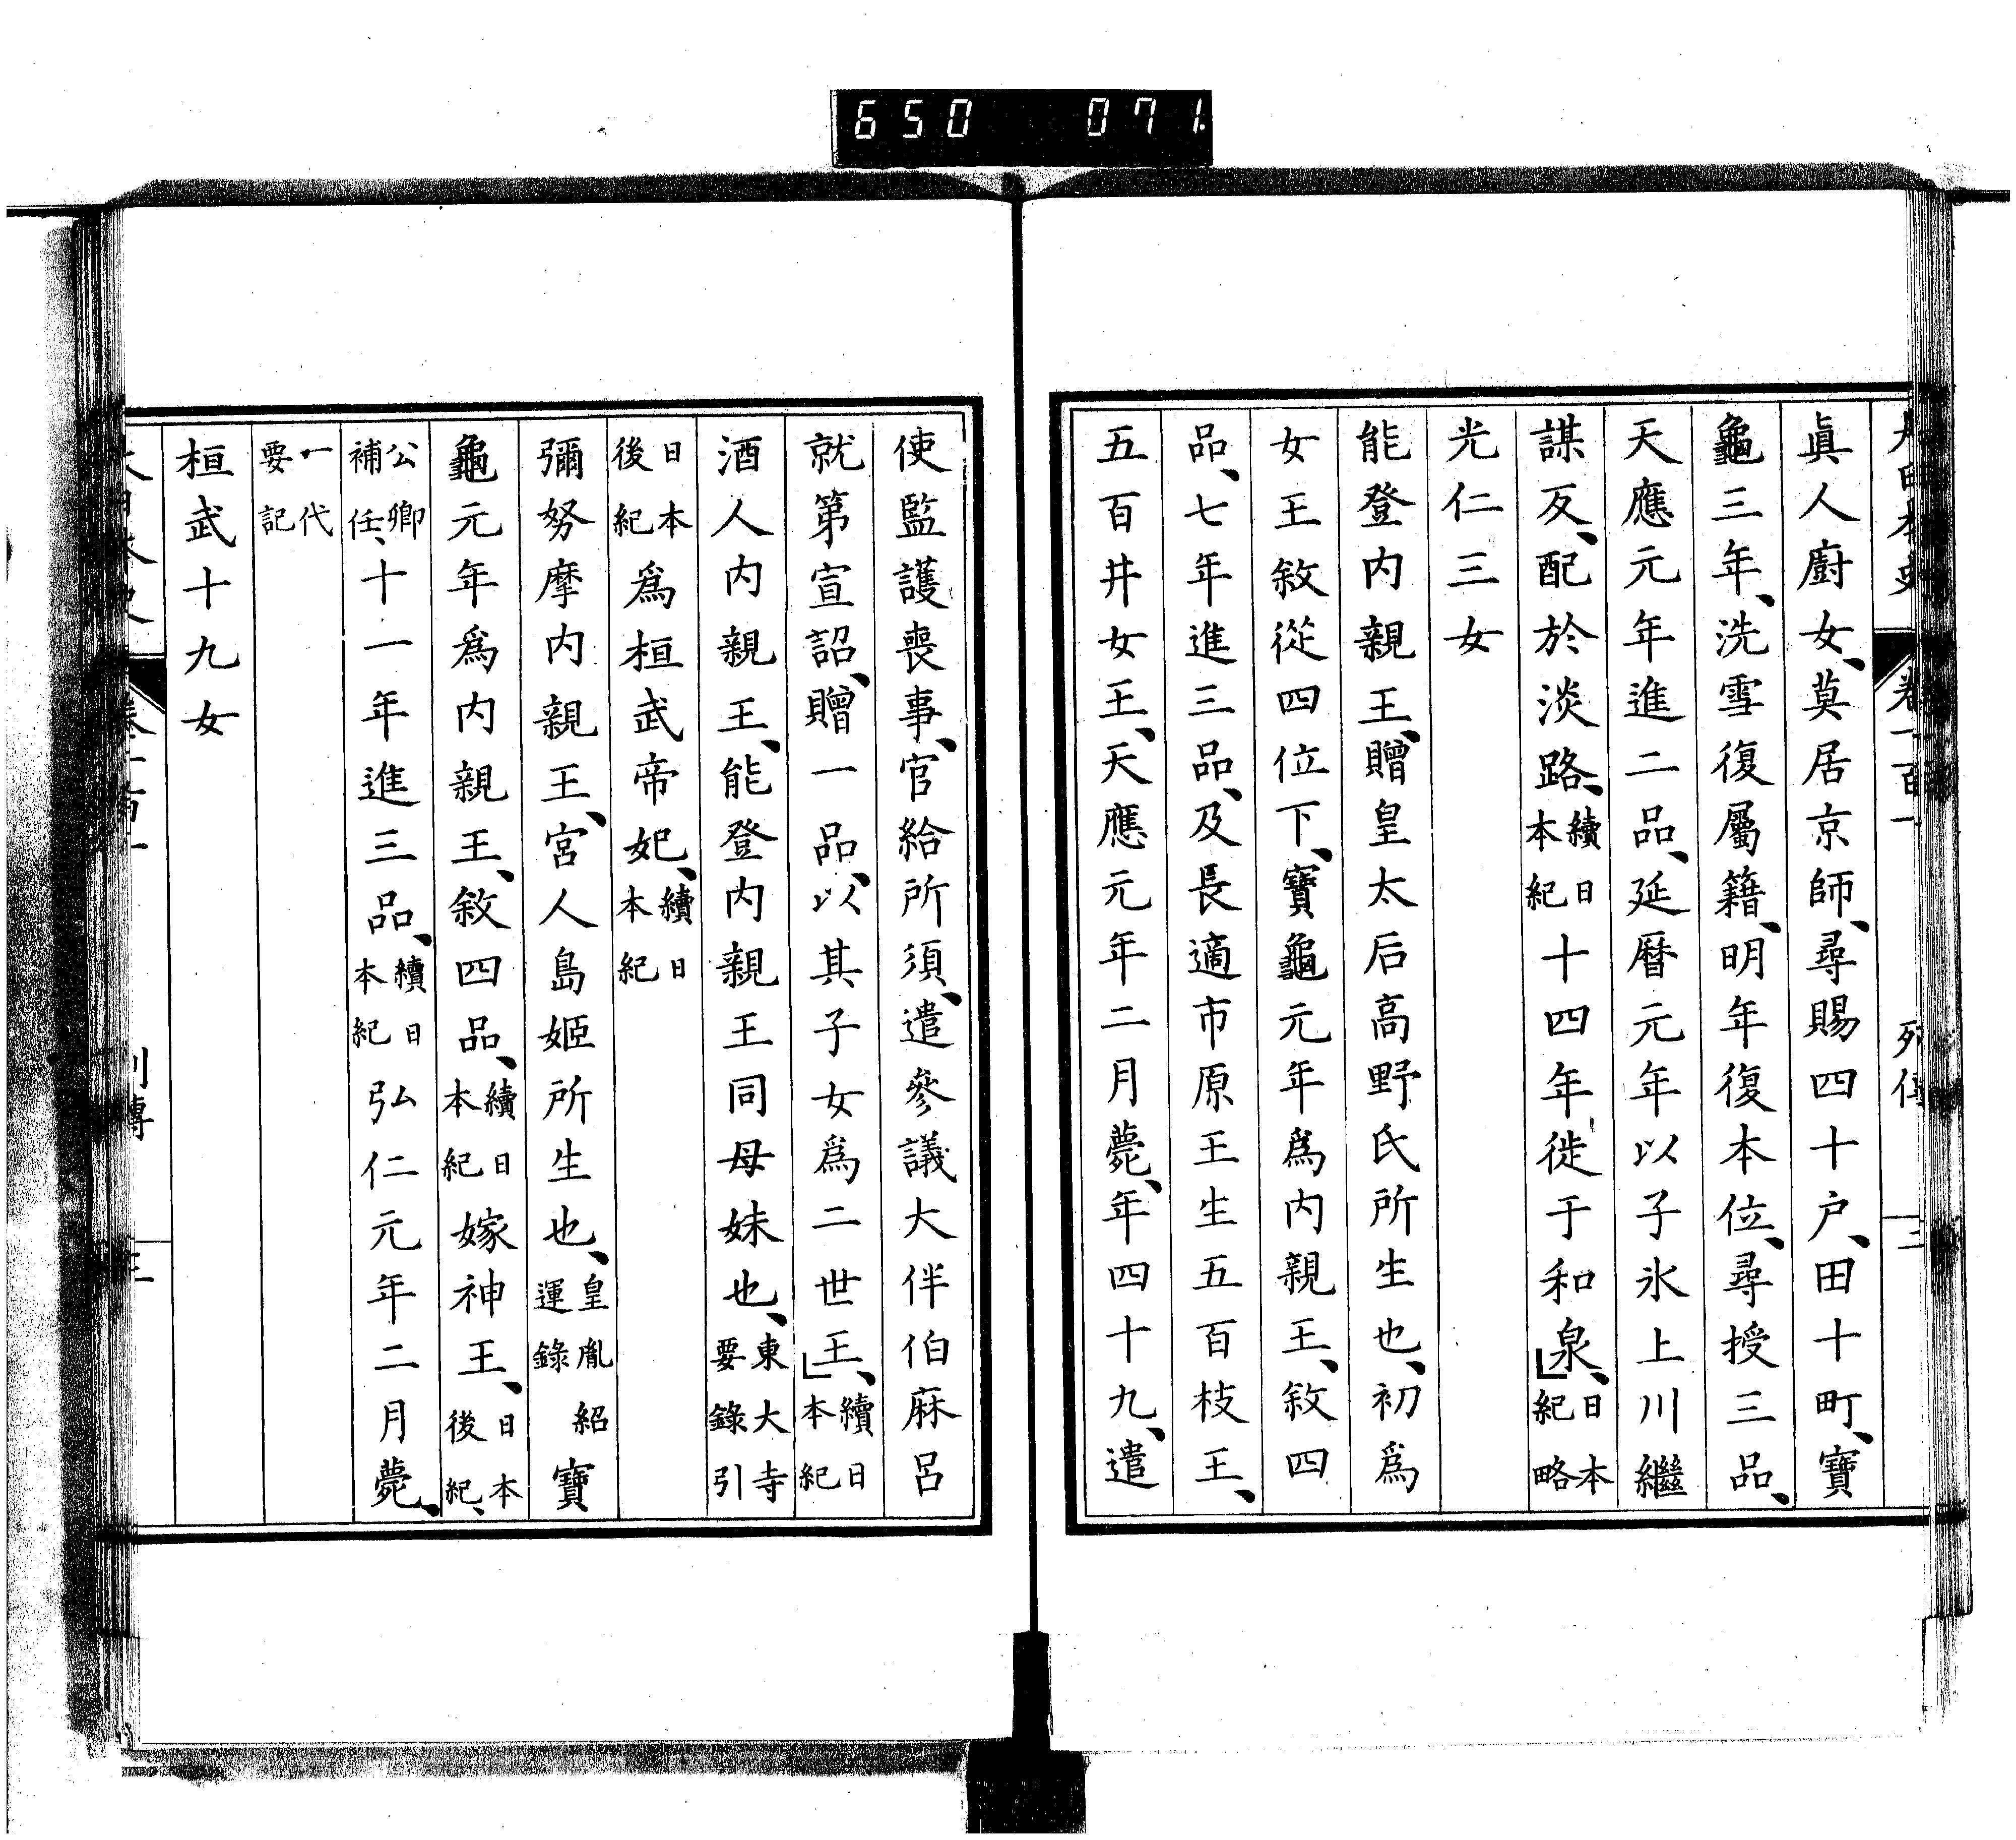 650 071
大日本史 卷一百一 列傳 三
眞人廚女、莫居京師、尋賜四十戸、田十町、寶
龜三年、洗雪復屬籍、明年復本位、尋授三品、
天應元年進二品、延曆元年以子氷上川繼
謀反、配於淡路、續日本紀十四年徙于和泉、日本紀略
光仁三女
能登内親王、贈皇太后高野氏所生也、初爲
女王敘從四位下、寶龜元年爲内親王、敘四
品、七年進三品、及長適市原王生五百枝王、
五百井女王、天應元年二月薨、年四十九、遣
使監護喪事、官給所須、遣參議大伴伯麻呂
就第宣詔、贈一品、以其子女爲二世王、續日本紀
酒人内親王、能登内親王同母妹也、東大寺要錄引
日本後紀爲桓武帝妃、續日本紀
彌努摩内親王、宮人島姬所生也、皇胤紹運錄寶
龜元年爲内親王、敘四品、續日本紀嫁神王、日本後紀、
公卿補任、十一年進三品、續日本紀弘仁元年二月薨、
一代要記
桓武十九女